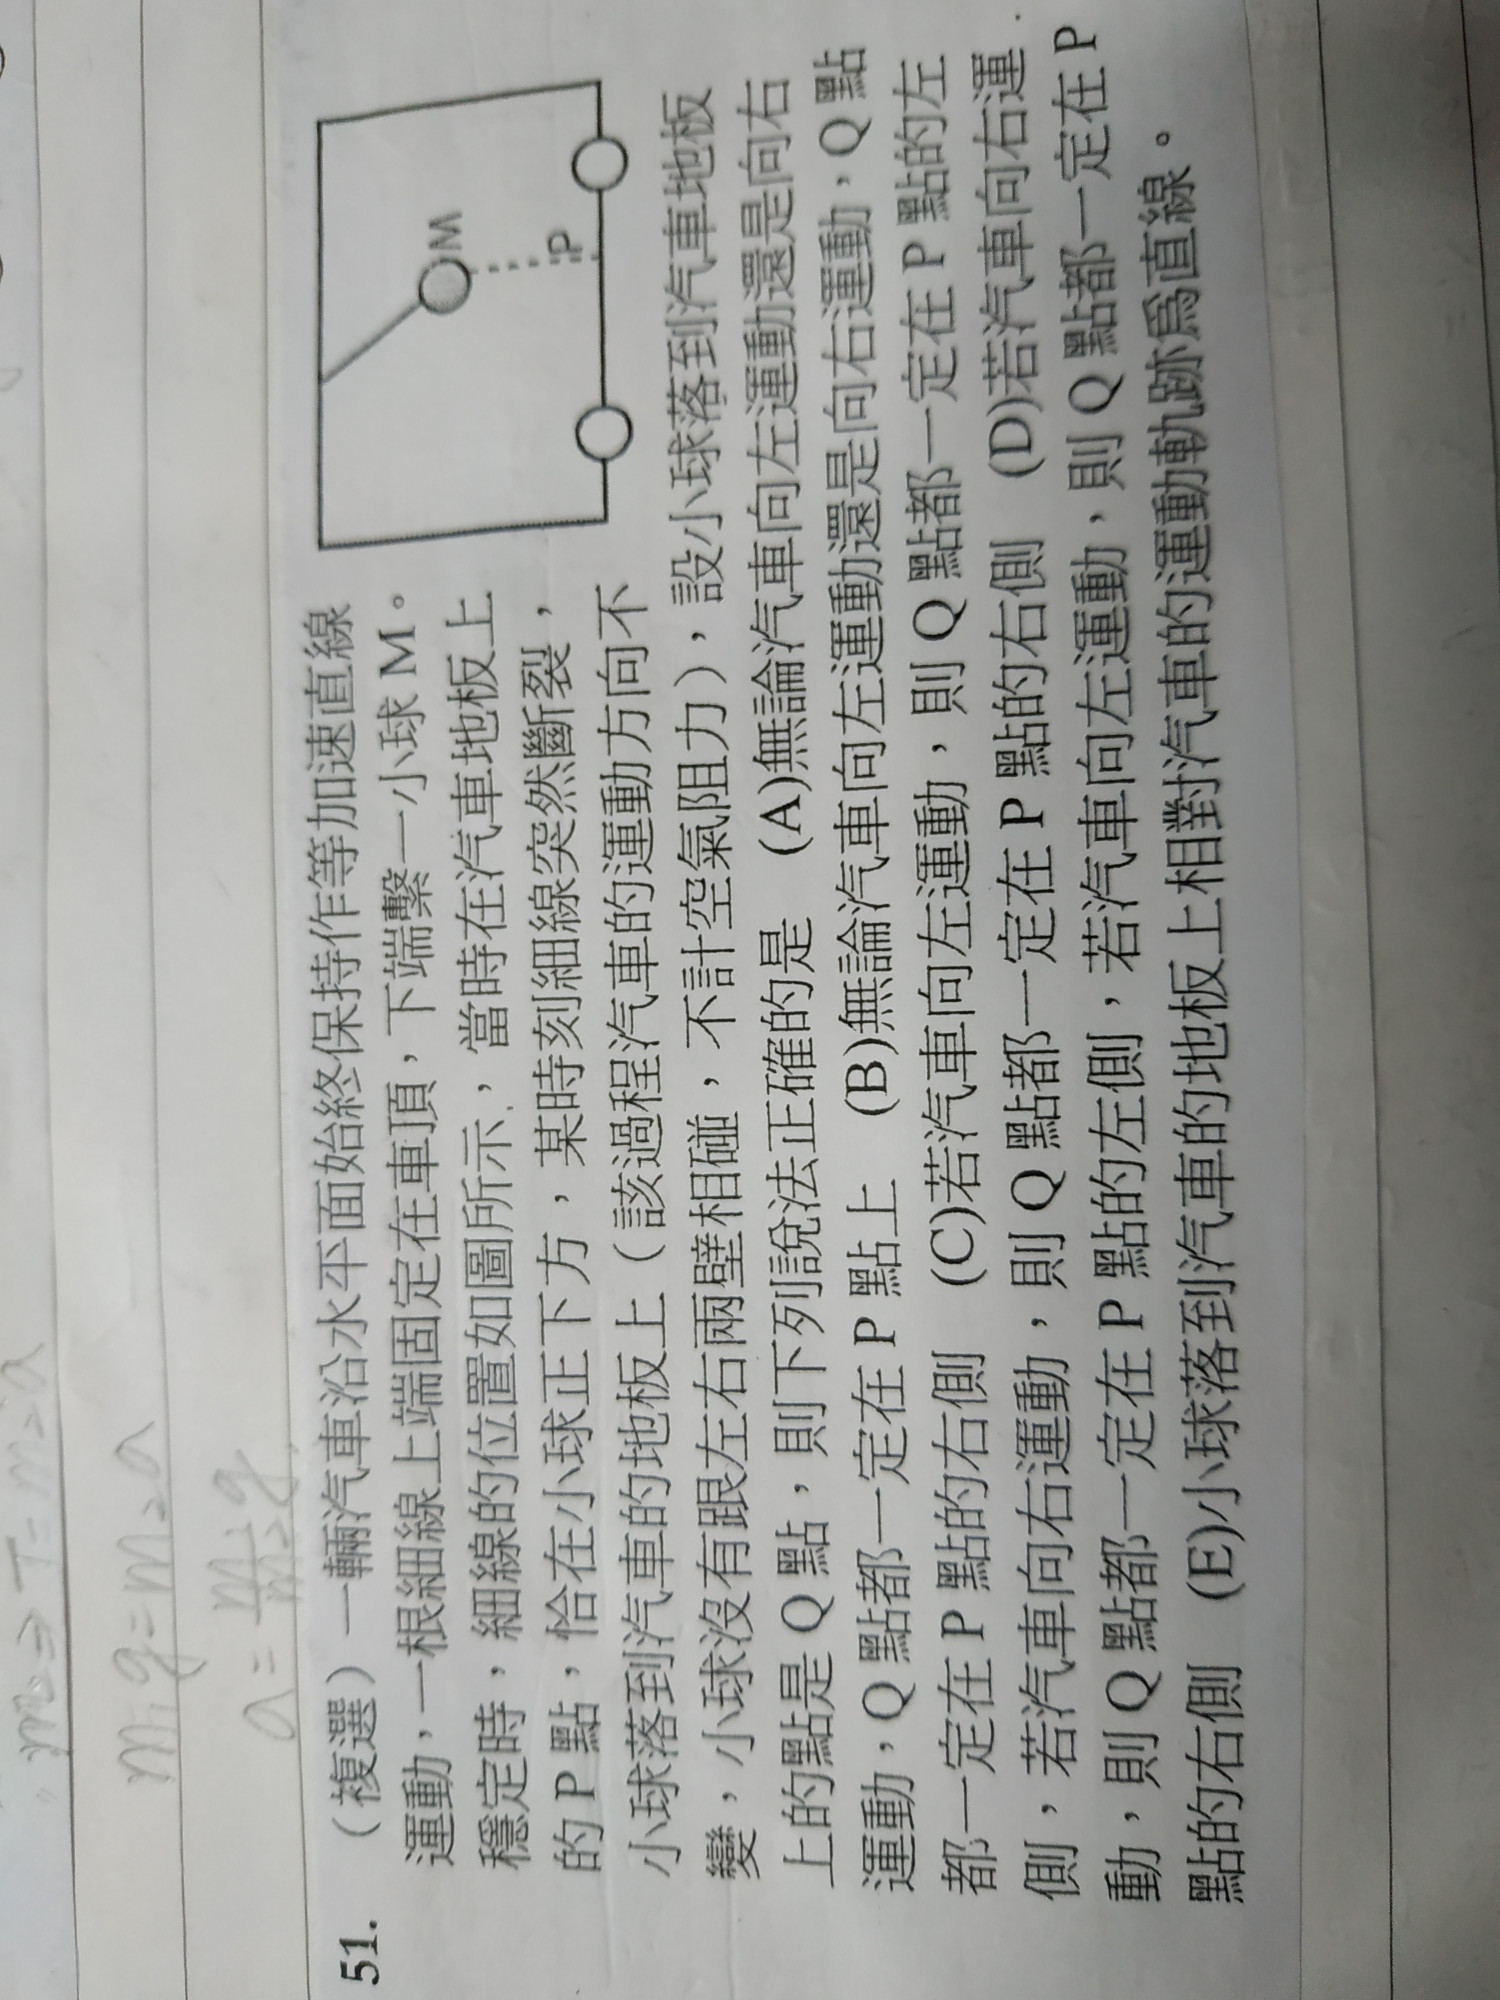 m2⇒T=m2a
m1g=m2a
a=m1/m2 g
51. （複選）一輛汽車沿水平面始終保持作等加速直線
運動，一根細線上端固定在車頂，下端繫一小球 M。
穩定時，細線的位置如圖所示，當時在汽車地板上
的 P 點，恰在小球正下方，某時刻細線突然斷裂，
小球落到汽車的地板上（該過程汽車的運動方向不
變，小球沒有跟左右兩壁相碰，不計空氣阻力），設小球落到汽車地板
上的點是 Q 點，則下列說法正確的是 (A)無論汽車向左運動還是向右
運動，Q 點都一定在 P 點上 (B)無論汽車向左運動還是向右運動，Q 點
都一定在 P 點的右側 (C)若汽車向左運動，則 Q 點都一定在 P 點的左
側，若汽車向右運動，則 Q 點都一定在 P 點的右側 (D)若汽車向右運
動，則 Q 點都一定在 P 點的左側，若汽車向左運動，則 Q 點都一定在 P
點的右側 (E)小球落到汽車的地板上相對汽車的運動軌跡爲直線。
M
P